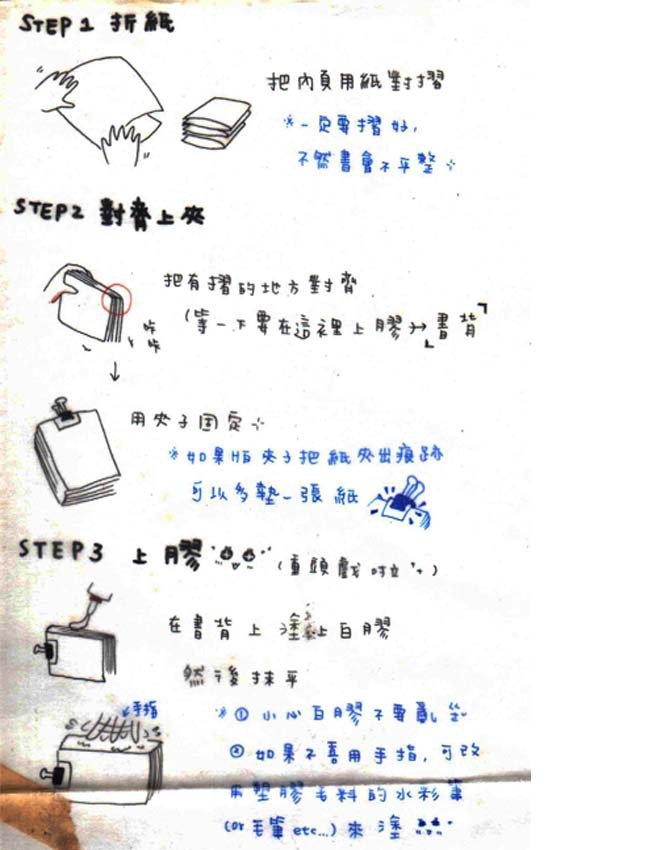 STEP1 折紙
把內頁用紙對摺
※一定要摺好,
不然書會不平整
STEP2 對齊上夾
把有摺的地方對齊
(等一下要在這裡上膠→「書背」
咔
咔
用夾子固定
※如果怕夾子把紙夾出痕跡
可以多墊一張紙
STEP3 上膠
(重頭戲啦)
在書背上塗上白膠
然後抹平
手指
※①小心白膠不要亂
②如果不喜用手指,可改
用塑膠毛料的水彩筆
(or毛筆etc...)來塗